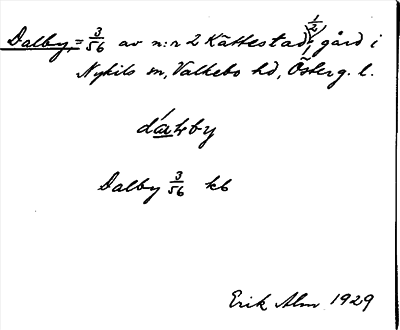 Dalby, = 3/56 av n:r 2 Kättestad, 1/2, gård i
Nykils sn, Valkebo hd, Österg. l.
Dalby 3/56 kb
Erik Alm 1929